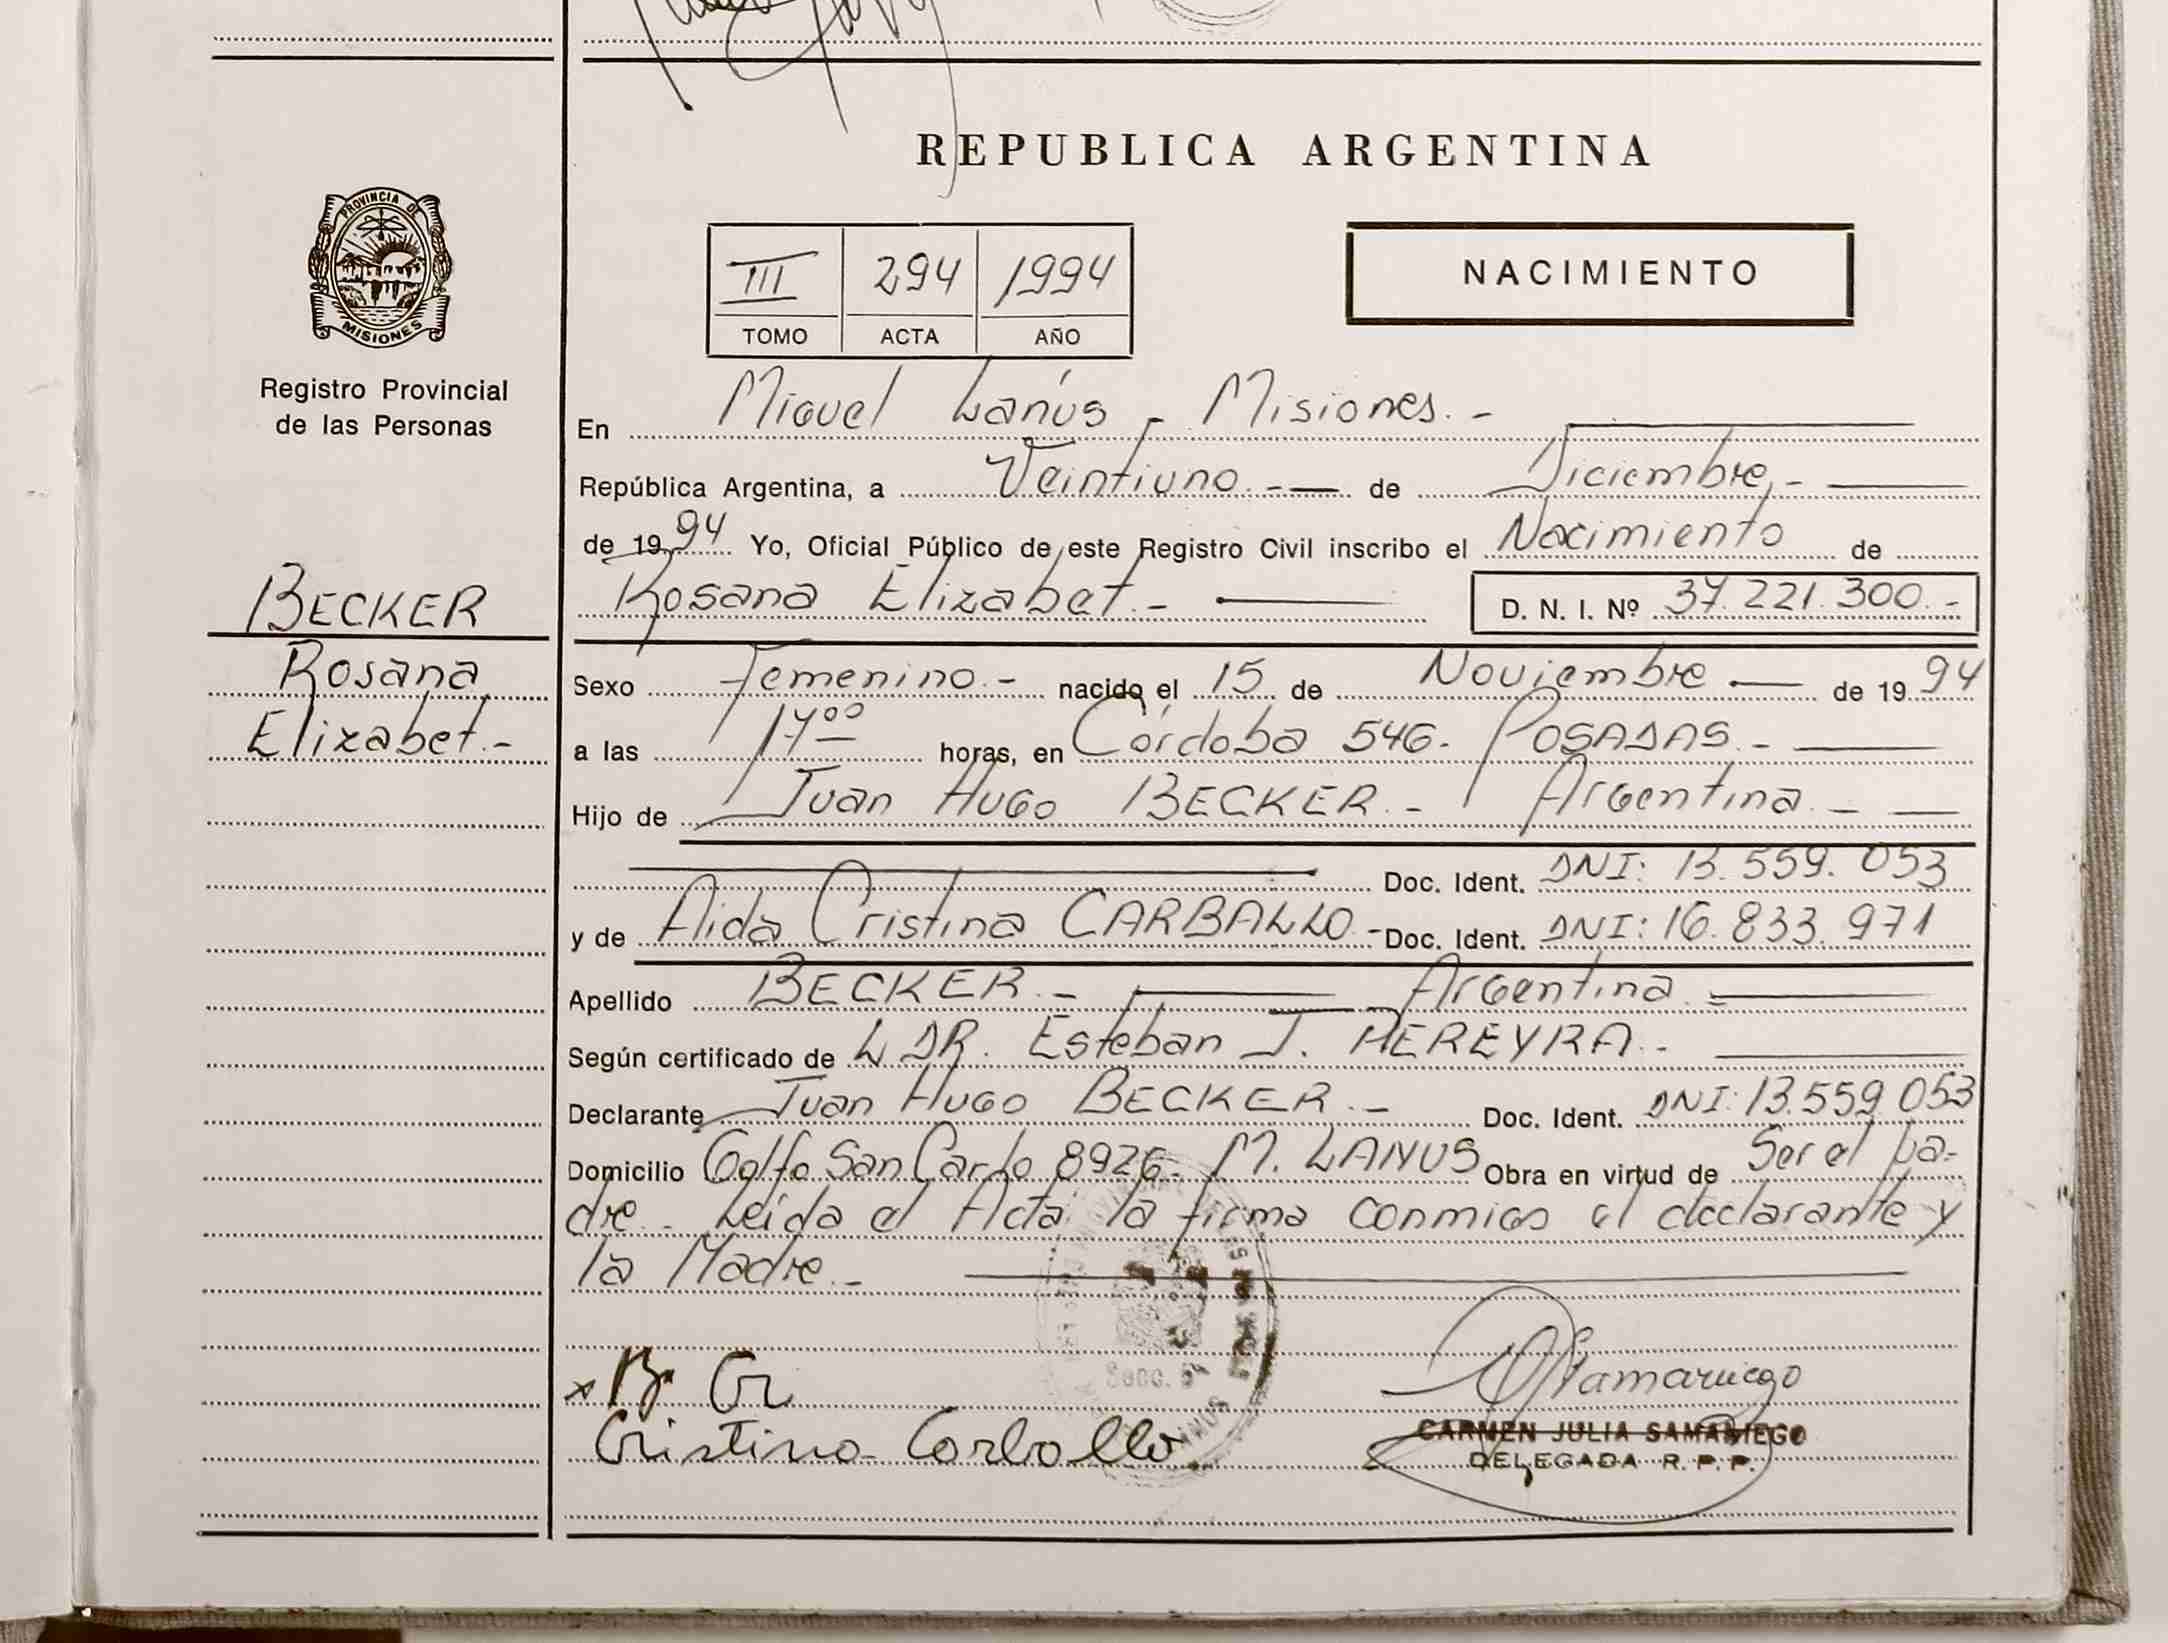 REPUBLICA ARGENTINA
PROVINCIA DE
MISIONES
Registro Provincial
de las Personas
III 294 1994
TOMO ACTA AÑO
NACIMIENTO
En Miguel Lanús - Misiones.-
República Argentina, a Veintiuno.- de Diciembre,-
de 1994 Yo, Oficial Público de este Registro Civil inscribo el Nacimiento de
Rosana Elizabet.- D. N. I. Nº 37.221.300.-
BECKER
Rosana
Elizabet.-
Sexo Femenino.- nacido el 15 de Noviembre de 1994
a las 17⁰⁰ horas, en Córdoba 546. POSADAS.-
Hijo de Juan Hugo BECKER.- Argentina.-
Doc. Ident. DNI: 13.559.053
y de Aida Cristina CARBALLO.- Doc. Ident. DNI: 16.833.971
Apellido BECKER.- Argentina.
Según certificado de L DR. Esteban J. PEREYRA.-
Declarante Juan Hugo BECKER.- Doc. Ident. DNI: 13.559.053
Domicilio Golfo San Carlo 8926. M. LANUS Obra en virtud de Ser el pa-
dre.- Leída el Acta la firma conmigo el declarante y
la Madre.-
Cristina Carballo
CARMEN JULIA SAMANIEGO
DELEGADA R. P. P.